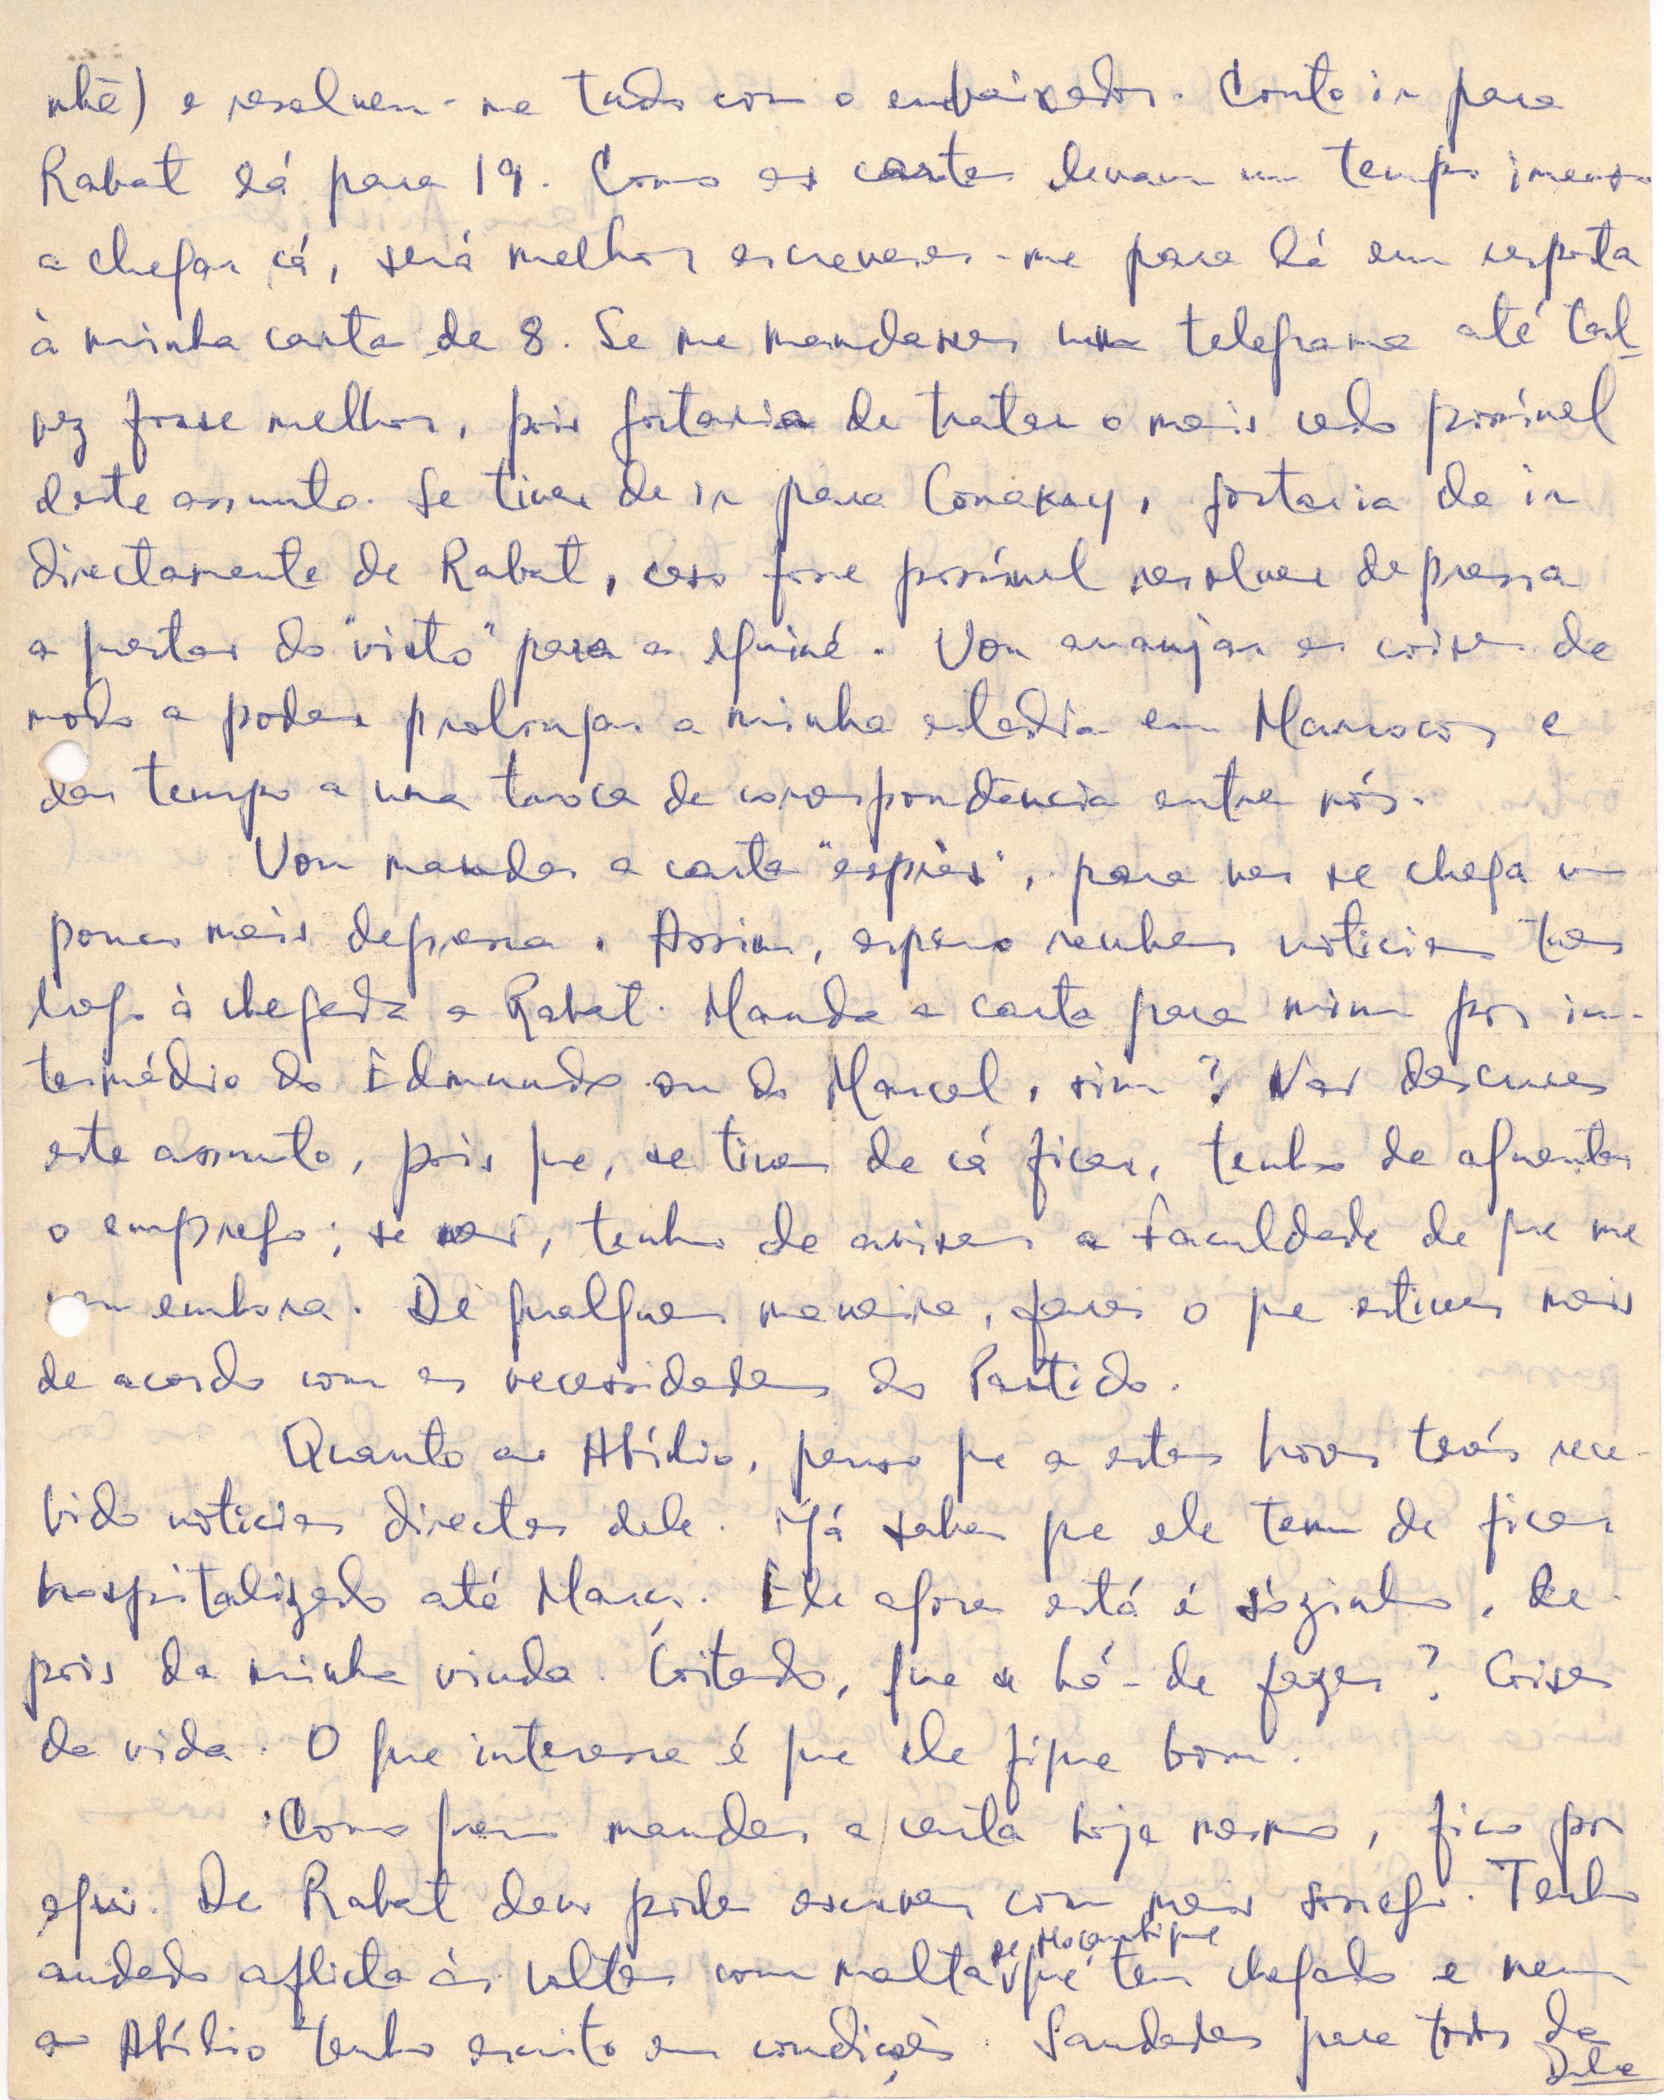 nhã) e resolvem-me tudo com o embaixador. Conto ir para
Rabat lá para 19. Como as cartas levam um tempo imenso
a chegar cá, será melhor escreveres-me para lá em resposta
à minha carta de 8. Se me mandasses um telegrama até tal-
vez fosse melhor, pois gostaria de tratar o mais cedo possível
deste assunto. Se tiver de ir para Conakry, gostaria de ir
directamente de Rabat, caso fosse possível resolver depressa
a questão do "visto" para a Guiné. Vou arranjar as coisas de
modo a poder prolongar a minha estadia em Marrocos e
dar tempo a uma troca de correspondência entre nós.
Vou mandar a carta "exprès", para ver se chega um
pouco mais depressa. Assim, espero receber notícias tuas
logo à chegada a Rabat. Manda a carta para mim por in-
termédio do Edmundo ou do Marcel, sim? Não descures
este assunto, pois que, se tiver de cá ficar, tenho de aguentar
o emprego; se não, tenho de avisar a Faculdade de que me
vou embora. De qualquer maneira, farei o que estiver mais
de acordo com as necessidades do Partido.
Quanto ao Abílio, penso que a estas horas terás rece-
bido notícias directas dele. Já sabes que ele tem de ficar
hospitalizado até Março. Ele agora está é sòzinho, de-
pois da minha vinda. Coitado, que se há-de fazer? Coisas
da vida. O que interessa é que ele fique bom.
Como quero mandar a carta hoje mesmo, fico por
aqui. De Rabat devo poder escrever com mais sossego. Tenho
andado aflita às voltas com malta de Moçambique que tem chegado e nem
ao Abílio tenho escrito em condições. Saudades para todos da
Dulce